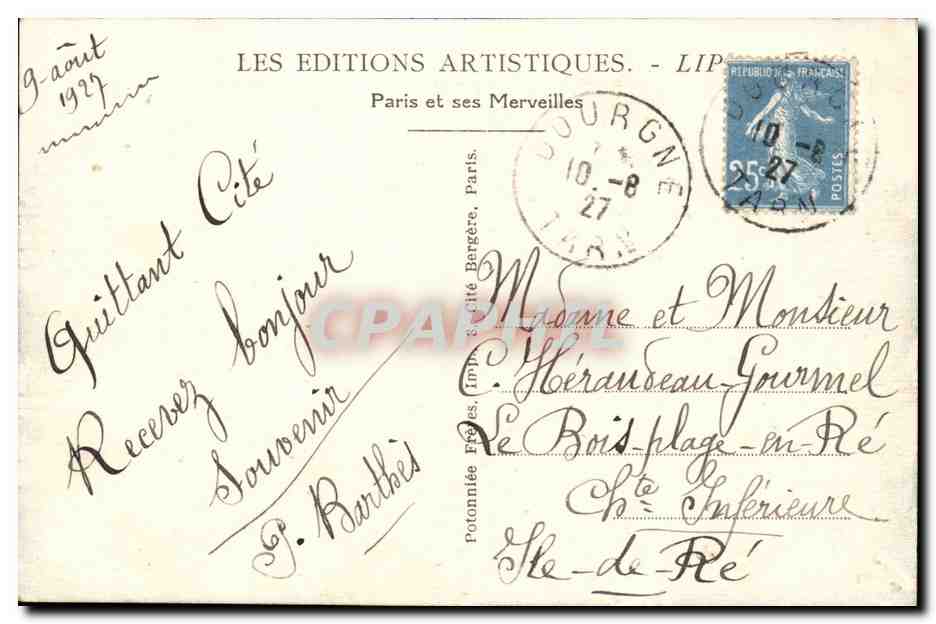 9 août
1927
LES EDITIONS ARTISTIQUES. - LIP
Paris et ses Merveilles
Quittant Cité
Recevez bonjour
Souvenir
P. Barthès
Potonniée Frères, Imp., 8, Cité Bergère, Paris.
DOURGNE
10 -8
27
TARN
REPUBLIQUE FRANÇAISE
25c
POSTES
10 -8
27
TARN
Madame et Monsieur
C. Héraudeau-Gourmel
Le Bois-plage-en-Ré
Chte Inférieure
Ile-de-Ré
CPAPHIL